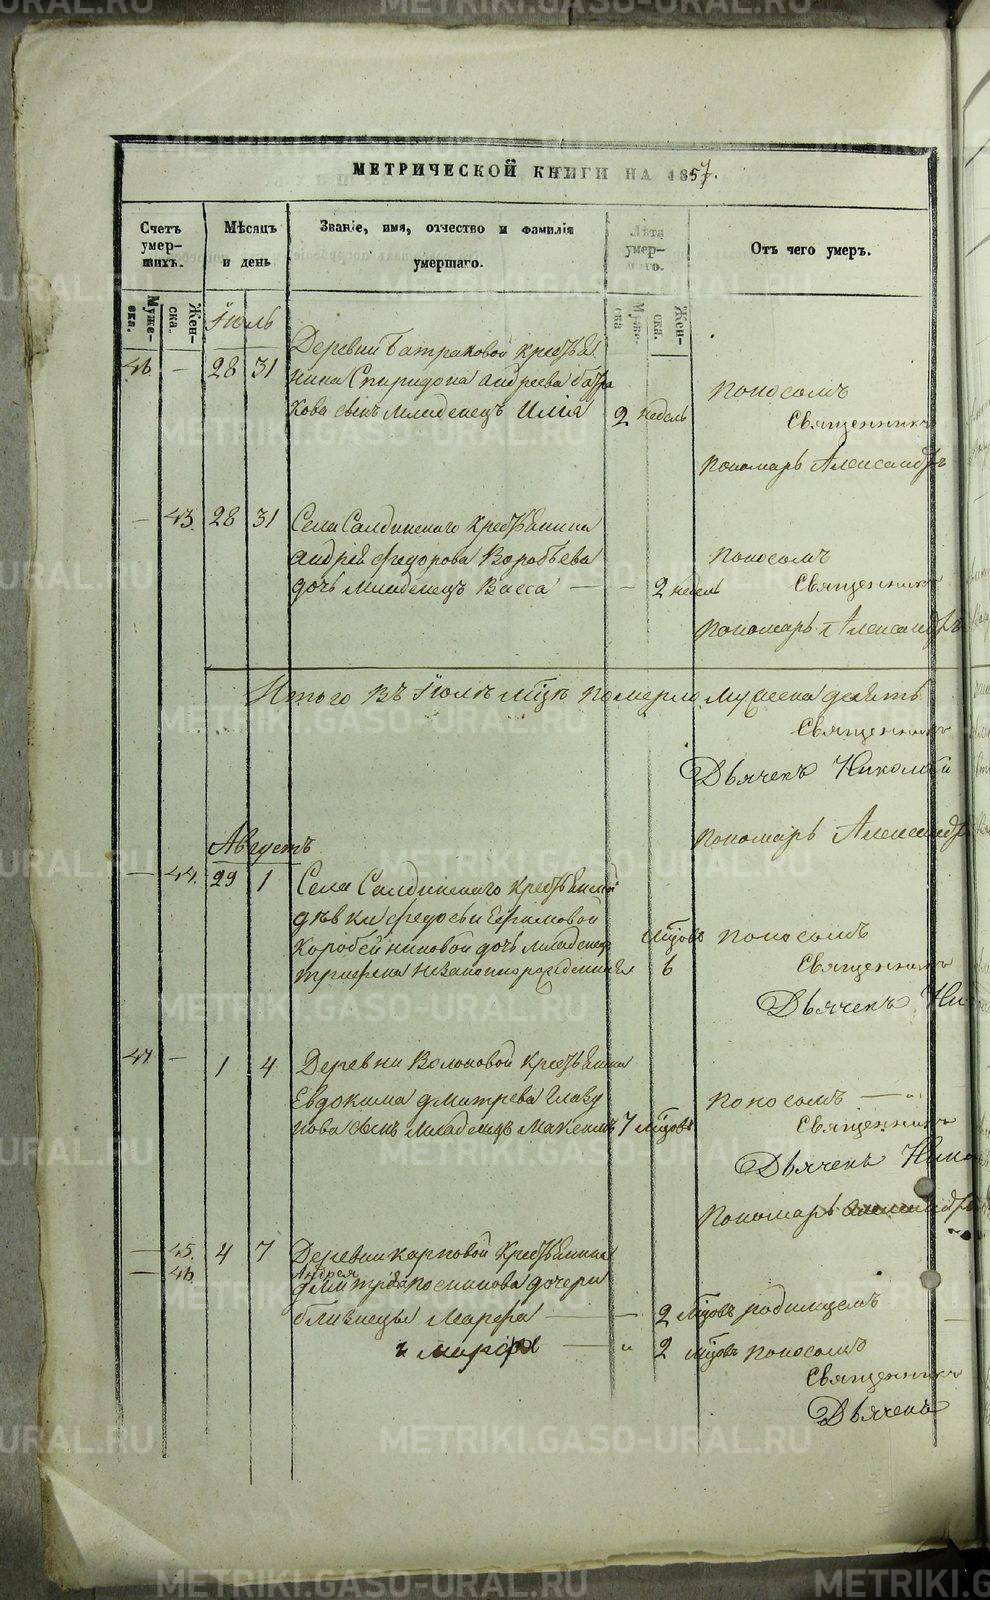 МЕТРИЧЕСКОЙ КНИГИ НА 1857.
Счетъ умер-шихъ.
Мѣсяцъ и день
Званіе, имя, отчество и фамилія умершаго.
Лѣта умер-шаго.
Отъ чего умеръ.
Муже-ска.
Жен-ска.
Муже-ска
Жен-ска.
Іюль
Деревни Батраковой крестья
46. — 28 31 нина Спиридона Андреева Батра
кова сынъ младенецъ Илия 2 недель Поносомъ
Священникъ
Пономарь Александръ
— 43. 28 31 Села Салдинскаго крестьянина
Андрея Федорова Воробьева Поносомъ
дочь младенецъ Васса — - 2 недель Священникъ
Пономарь Александръ
Итого въ Іюлѣ мцѣ померло мужеска девять
Священникъ
Дьячекъ Николай
Пономарь Александръ
Августъ
— 44. 29 1 Села Салдинскаго крестьянской
дѣвки Федосьи Ефимовой
Коробейниковой дочь младенецъ мцовъ Поносомъ
незаконнорожденная 6 Священникъ
Дьячекъ Ни
47. — 1 4 Деревни Волоковой крестьянина
Евдокима Дмитрева Главу Поносомъ —
нова сынъ младенецъ Максимъ 7 мцовъ Священникъ
Дьячекъ Нико
Пономарь Александръ
— 45. 4 7 Деревни Карповой крестьянина
— 46. Андрея
Дмитрева Постникова дочери
близнецы Марфа — - 2 мцовъ родимцемъ
и Марфа — " 2 мцовъ поносомъ
Священникъ
Дьячекъ
METRIKI.GASO-URAL.RU